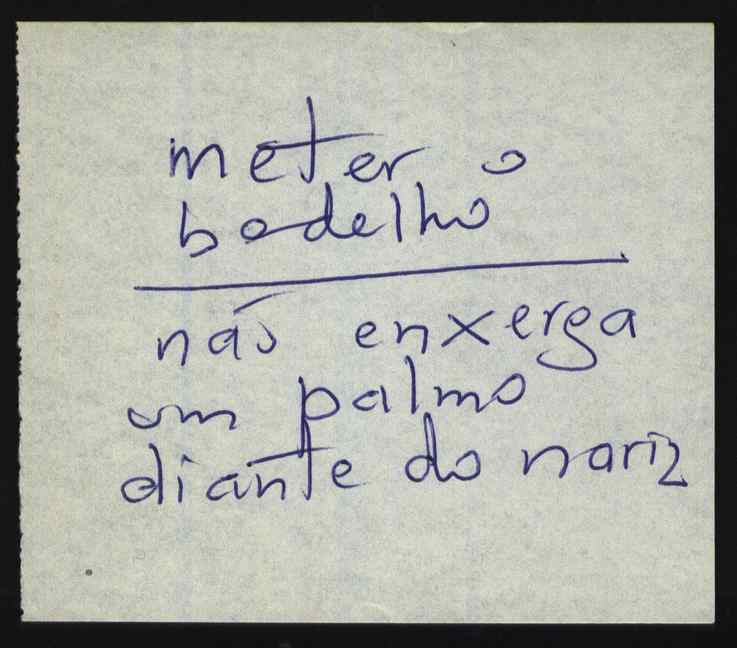 meter o
bedelho
não enxerga
um palmo
diante do nariz